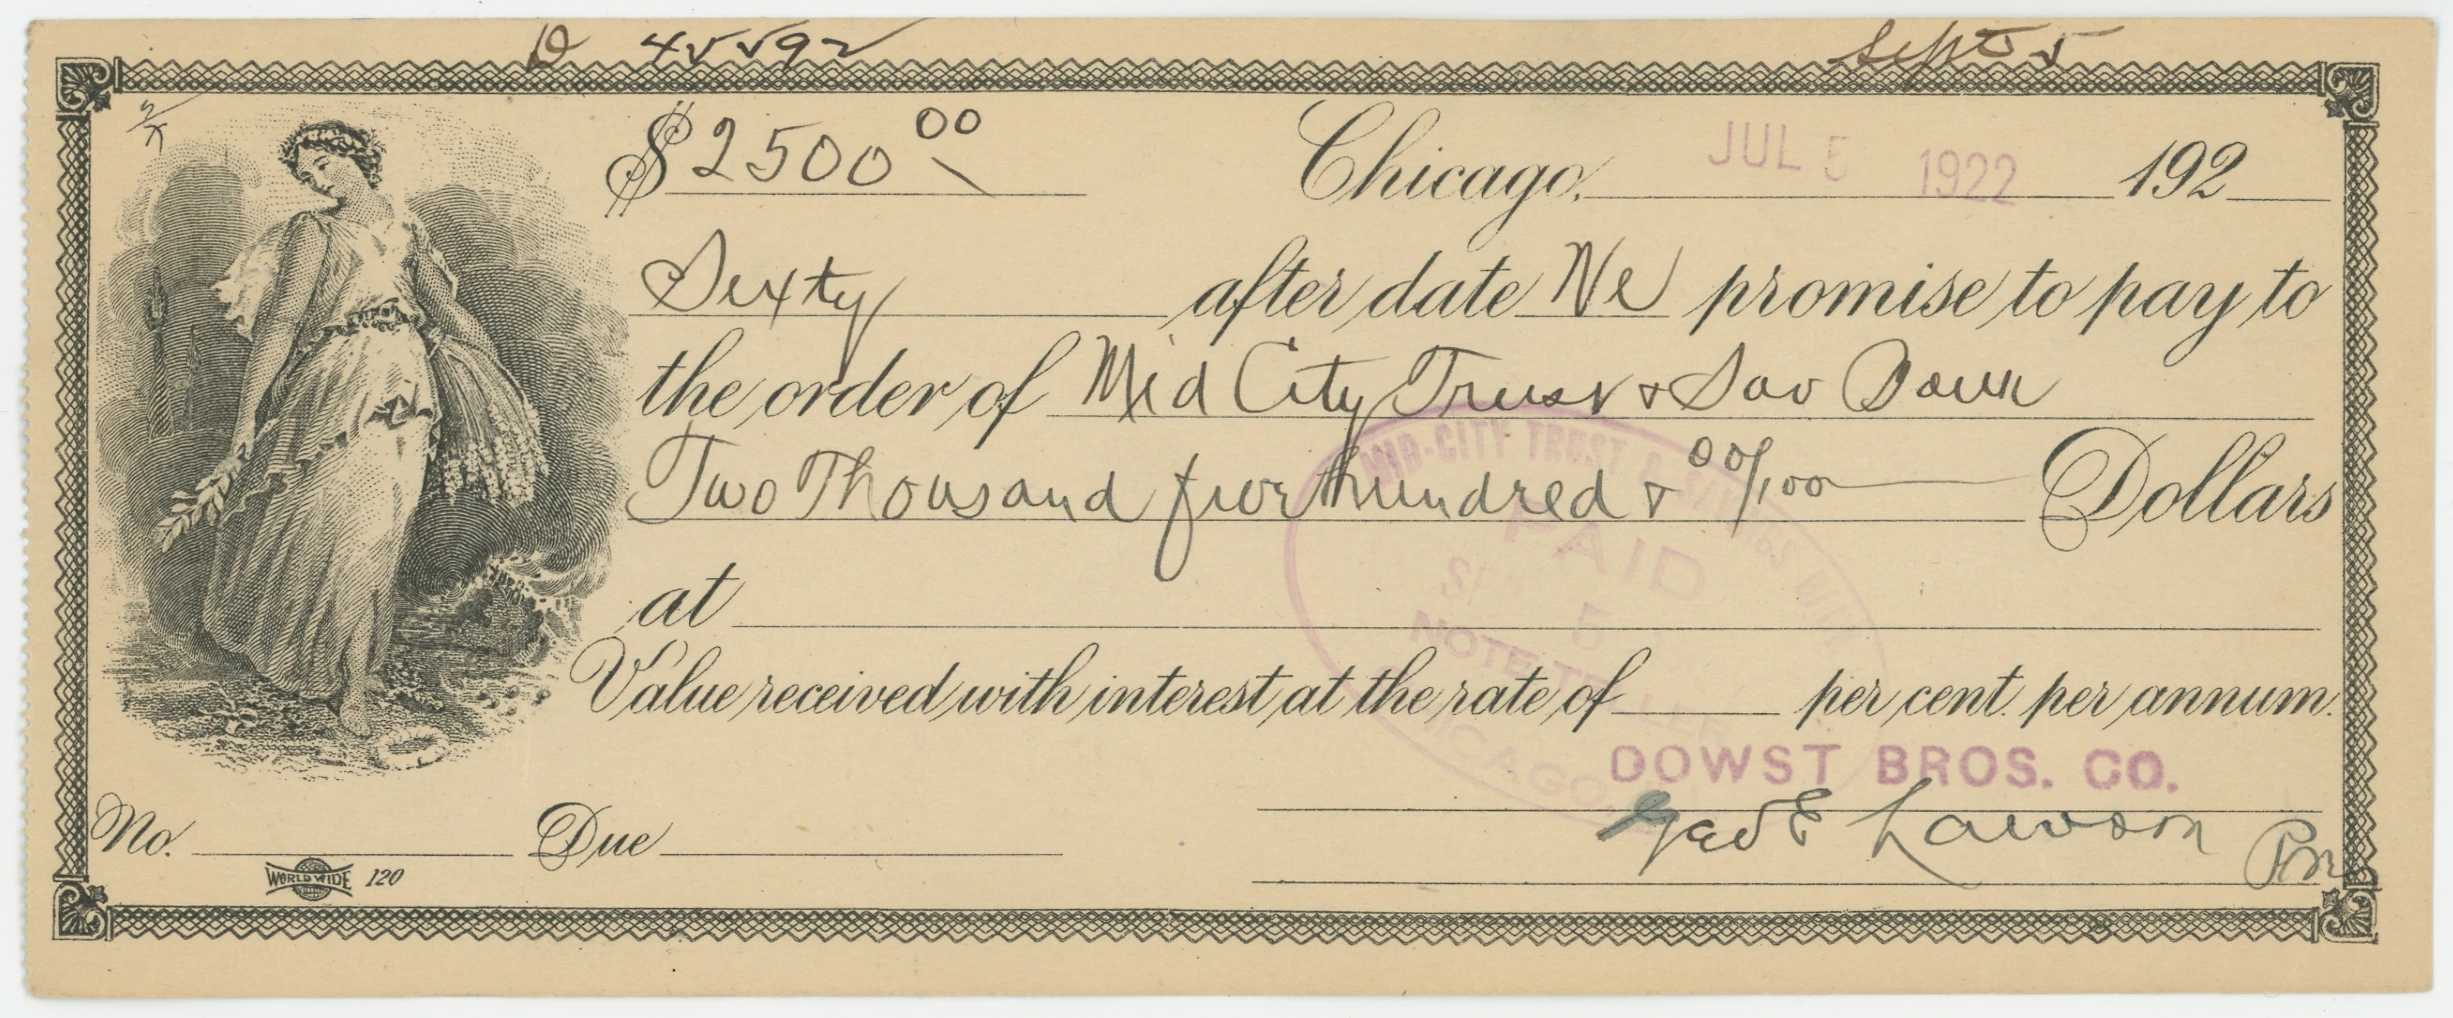 D 45592 Sept 5
$ 2500 00 Chicago, JUL 5 1922 192
Sixty after date We promise to pay to
the order of Mid City Trust & Sav Bank
Two Thousand five hundred & 00/100 Dollars
MID-CITY TRUST & SAVINGS BANK
PAID
SEP 5
NOTE TELLER
CHICAGO
at
Value received with interest at the rate of per cent. per annum.
DOWST BROS. CO.
Geo E Lawson
No. Due
WORLD WIDE 120